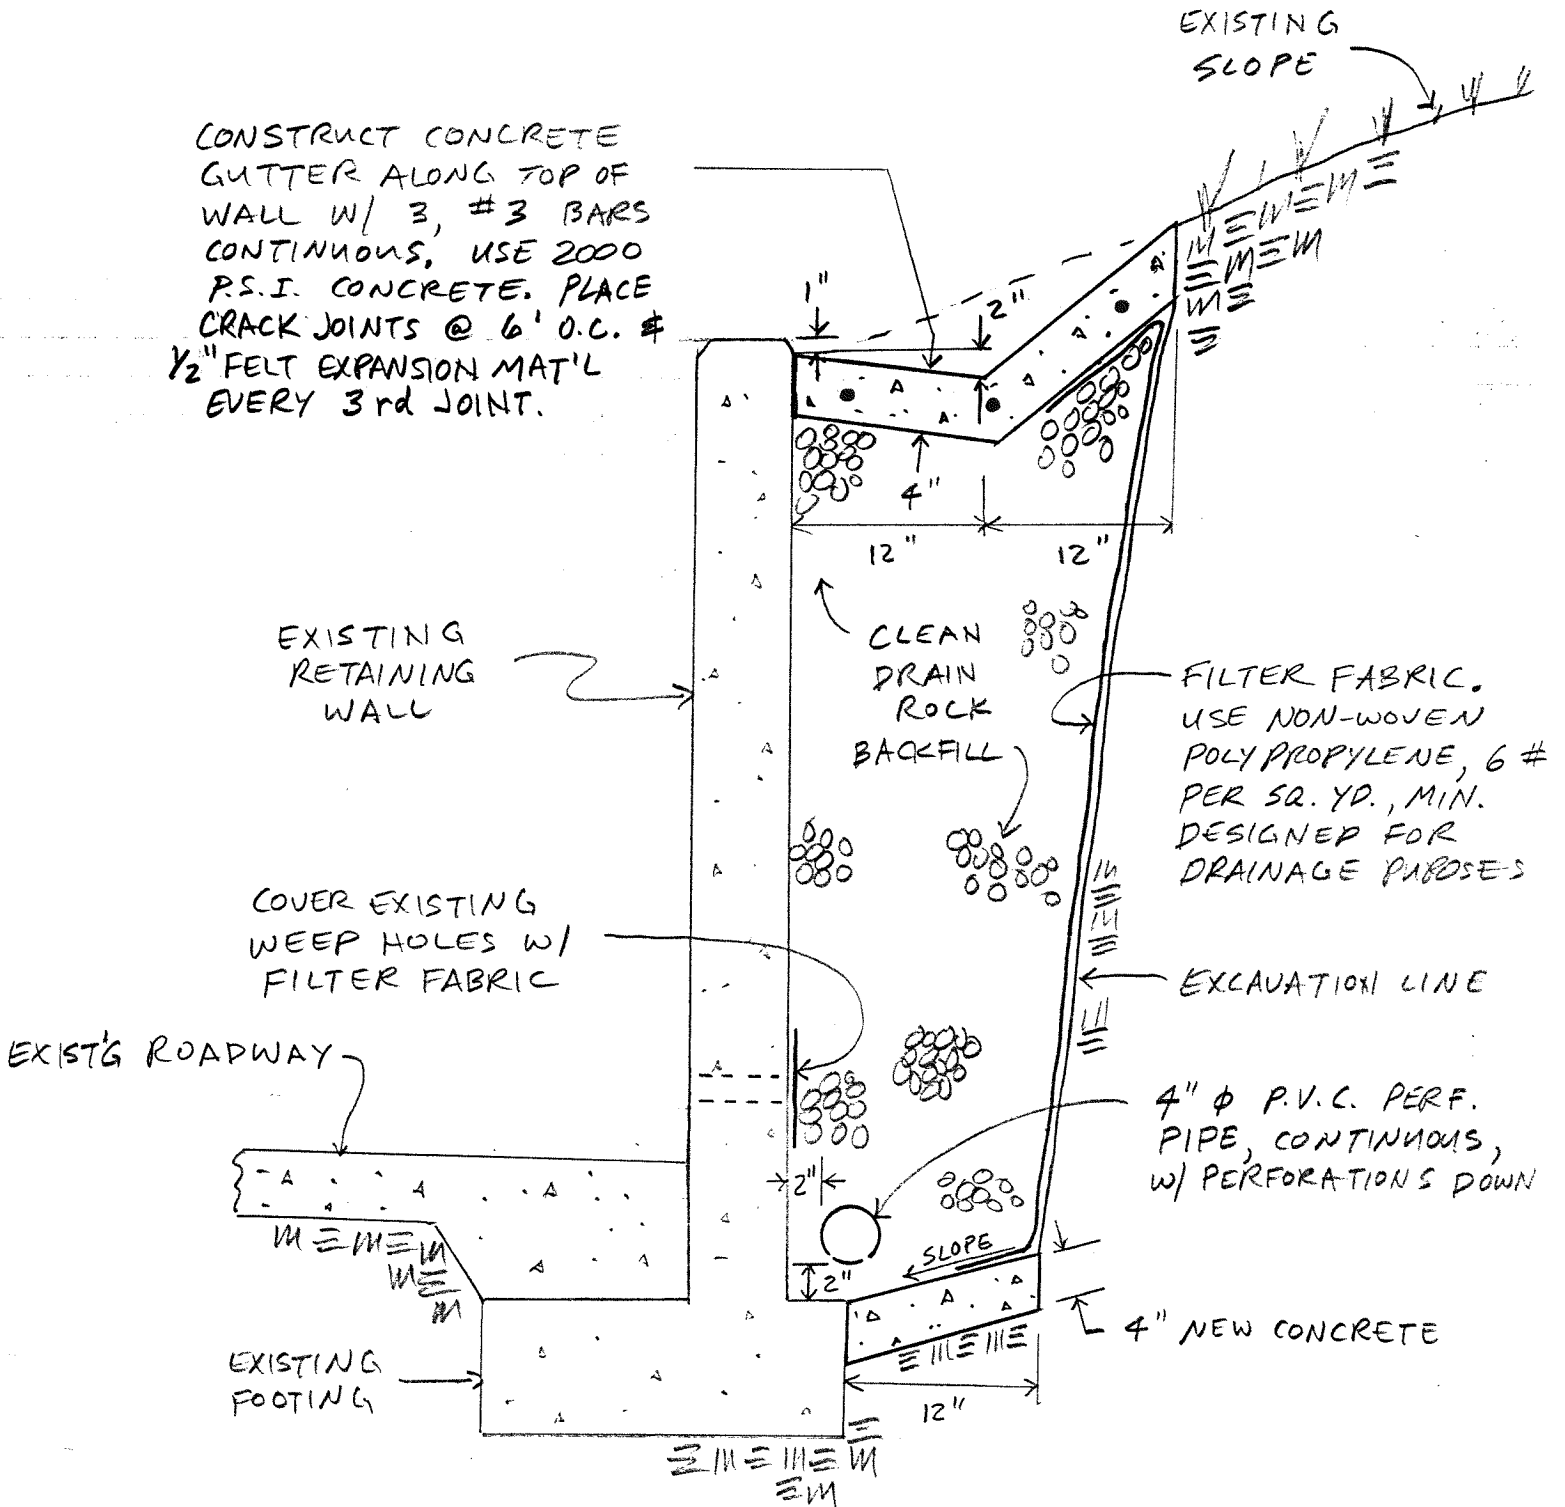 EXISTING
SLOPE
CONSTRUCT CONCRETE
GUTTER ALONG TOP OF
WALL W/ 3, #3 BARS
CONTINUOUS. USE 2000
P.S.I. CONCRETE. PLACE
CRACK JOINTS @ 6' O.C. &
1/2" FELT EXPANSION MAT'L
EVERY 3rd JOINT.
1"
2"
4"
12"
12"
EXISTING
RETAINING
WALL
CLEAN
DRAIN
ROCK
BACKFILL
FILTER FABRIC.
USE NON-WOVEN
POLYPROPYLENE, 6 #
PER SQ. YD., MIN.
DESIGNED FOR
DRAINAGE PUPOSES
COVER EXISTING
WEEP HOLES W/
FILTER FABRIC
EXCAVATION LINE
EXIST'G ROADWAY
4" φ P.V.C. PERF.
PIPE, CONTINUOUS,
W/ PERFORATIONS DOWN
2"
SLOPE
2"
4" NEW CONCRETE
EXISTING
FOOTING
12"